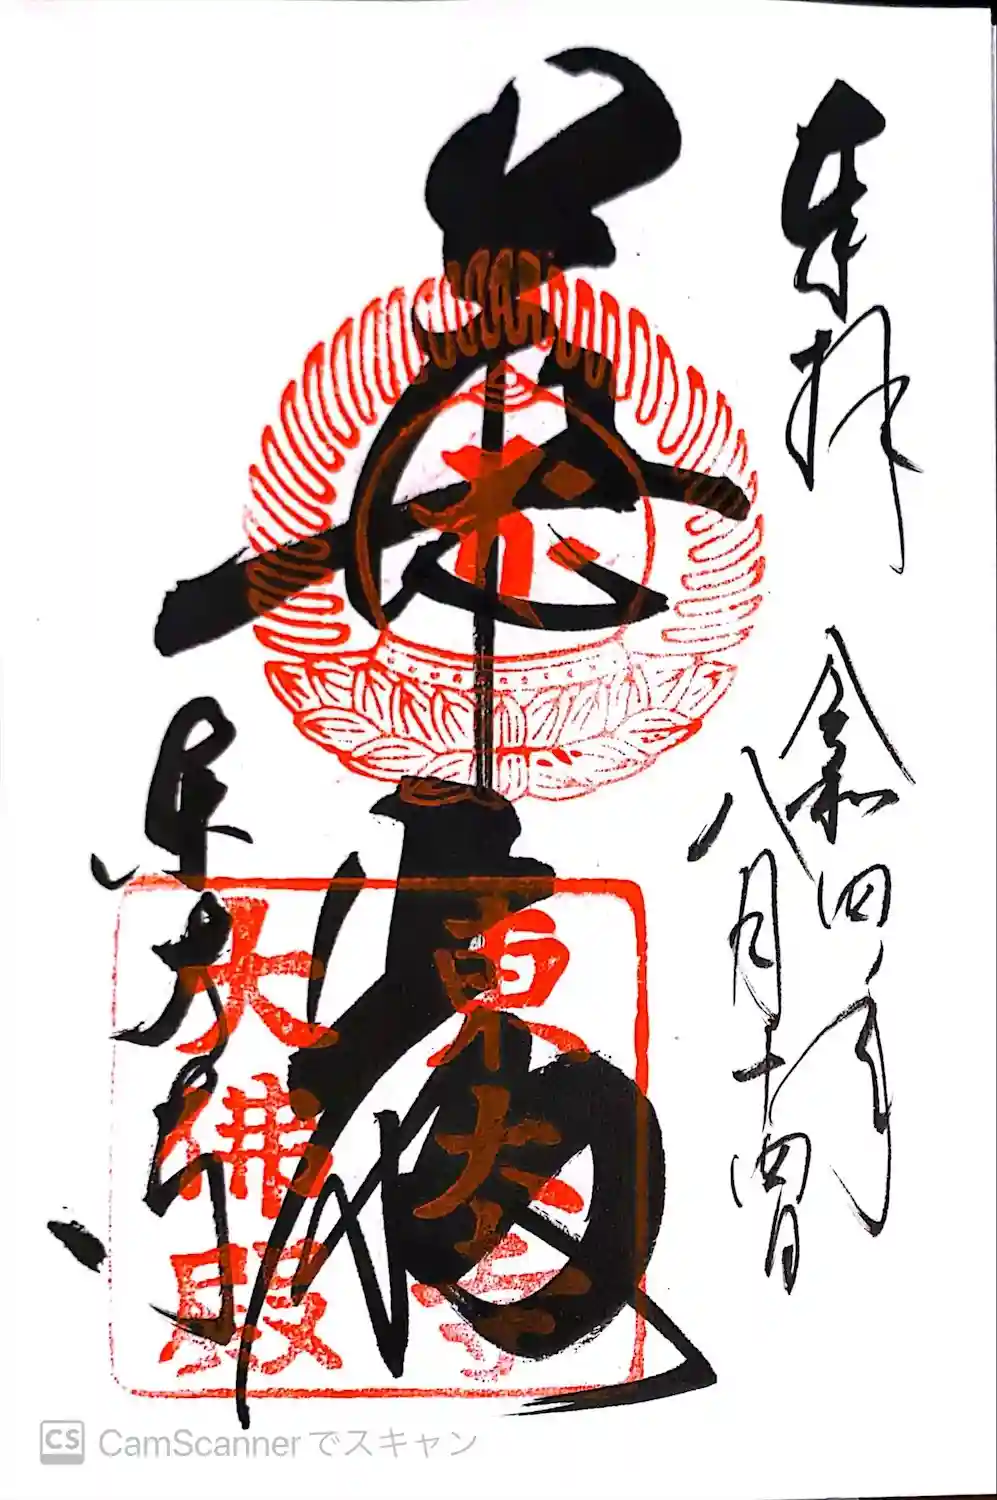 奉拝
令和四年
八月十四日
華厳
東大寺
東大寺
大佛殿
CS CamScannerでスキャン